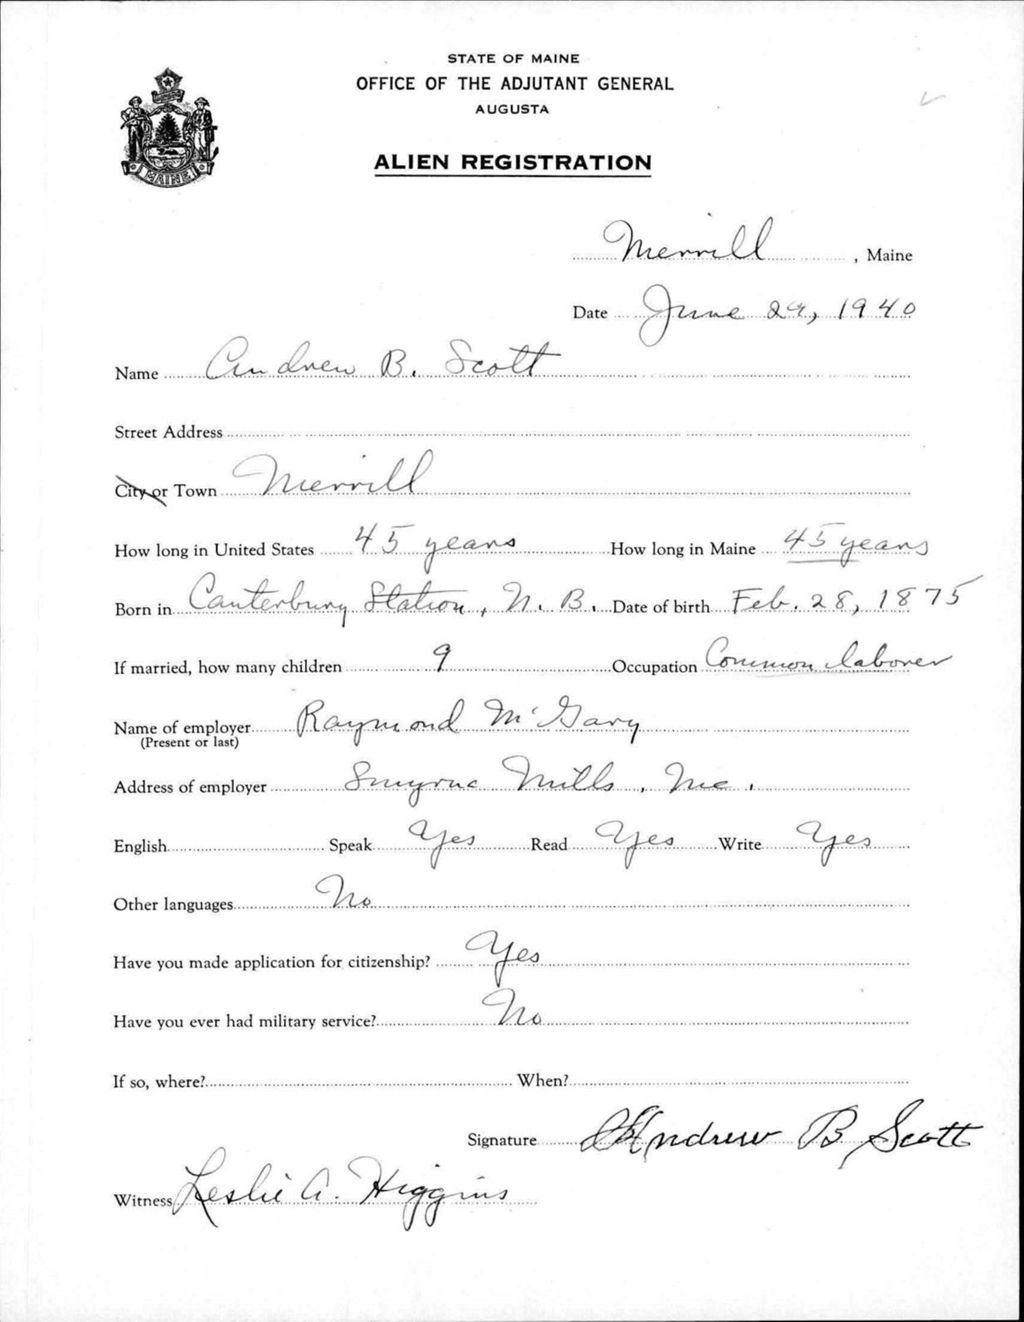 STATE OF MAINE
OFFICE OF THE ADJUTANT GENERAL
AUGUSTA
ALIEN REGISTRATION
MAINE
Merrill, Maine
Date June 29, 1940
Name Andrew B. Scott
Street Address
City or Town Merrill
How long in United States 45 years How long in Maine 45 years
Born in Canterbury Station, N. B. Date of birth Feb. 28, 1875
If married, how many children 9 Occupation Common laborer
Name of employer Raymond McGary
(Present or last)
Address of employer Smyrna Mills, Me.
English Speak Yes Read Yes Write Yes
Other languages No
Have you made application for citizenship? Yes
Have you ever had military service? No
If so, where? When?
Signature Andrew B Scott
Witness Leslie A. Higgins